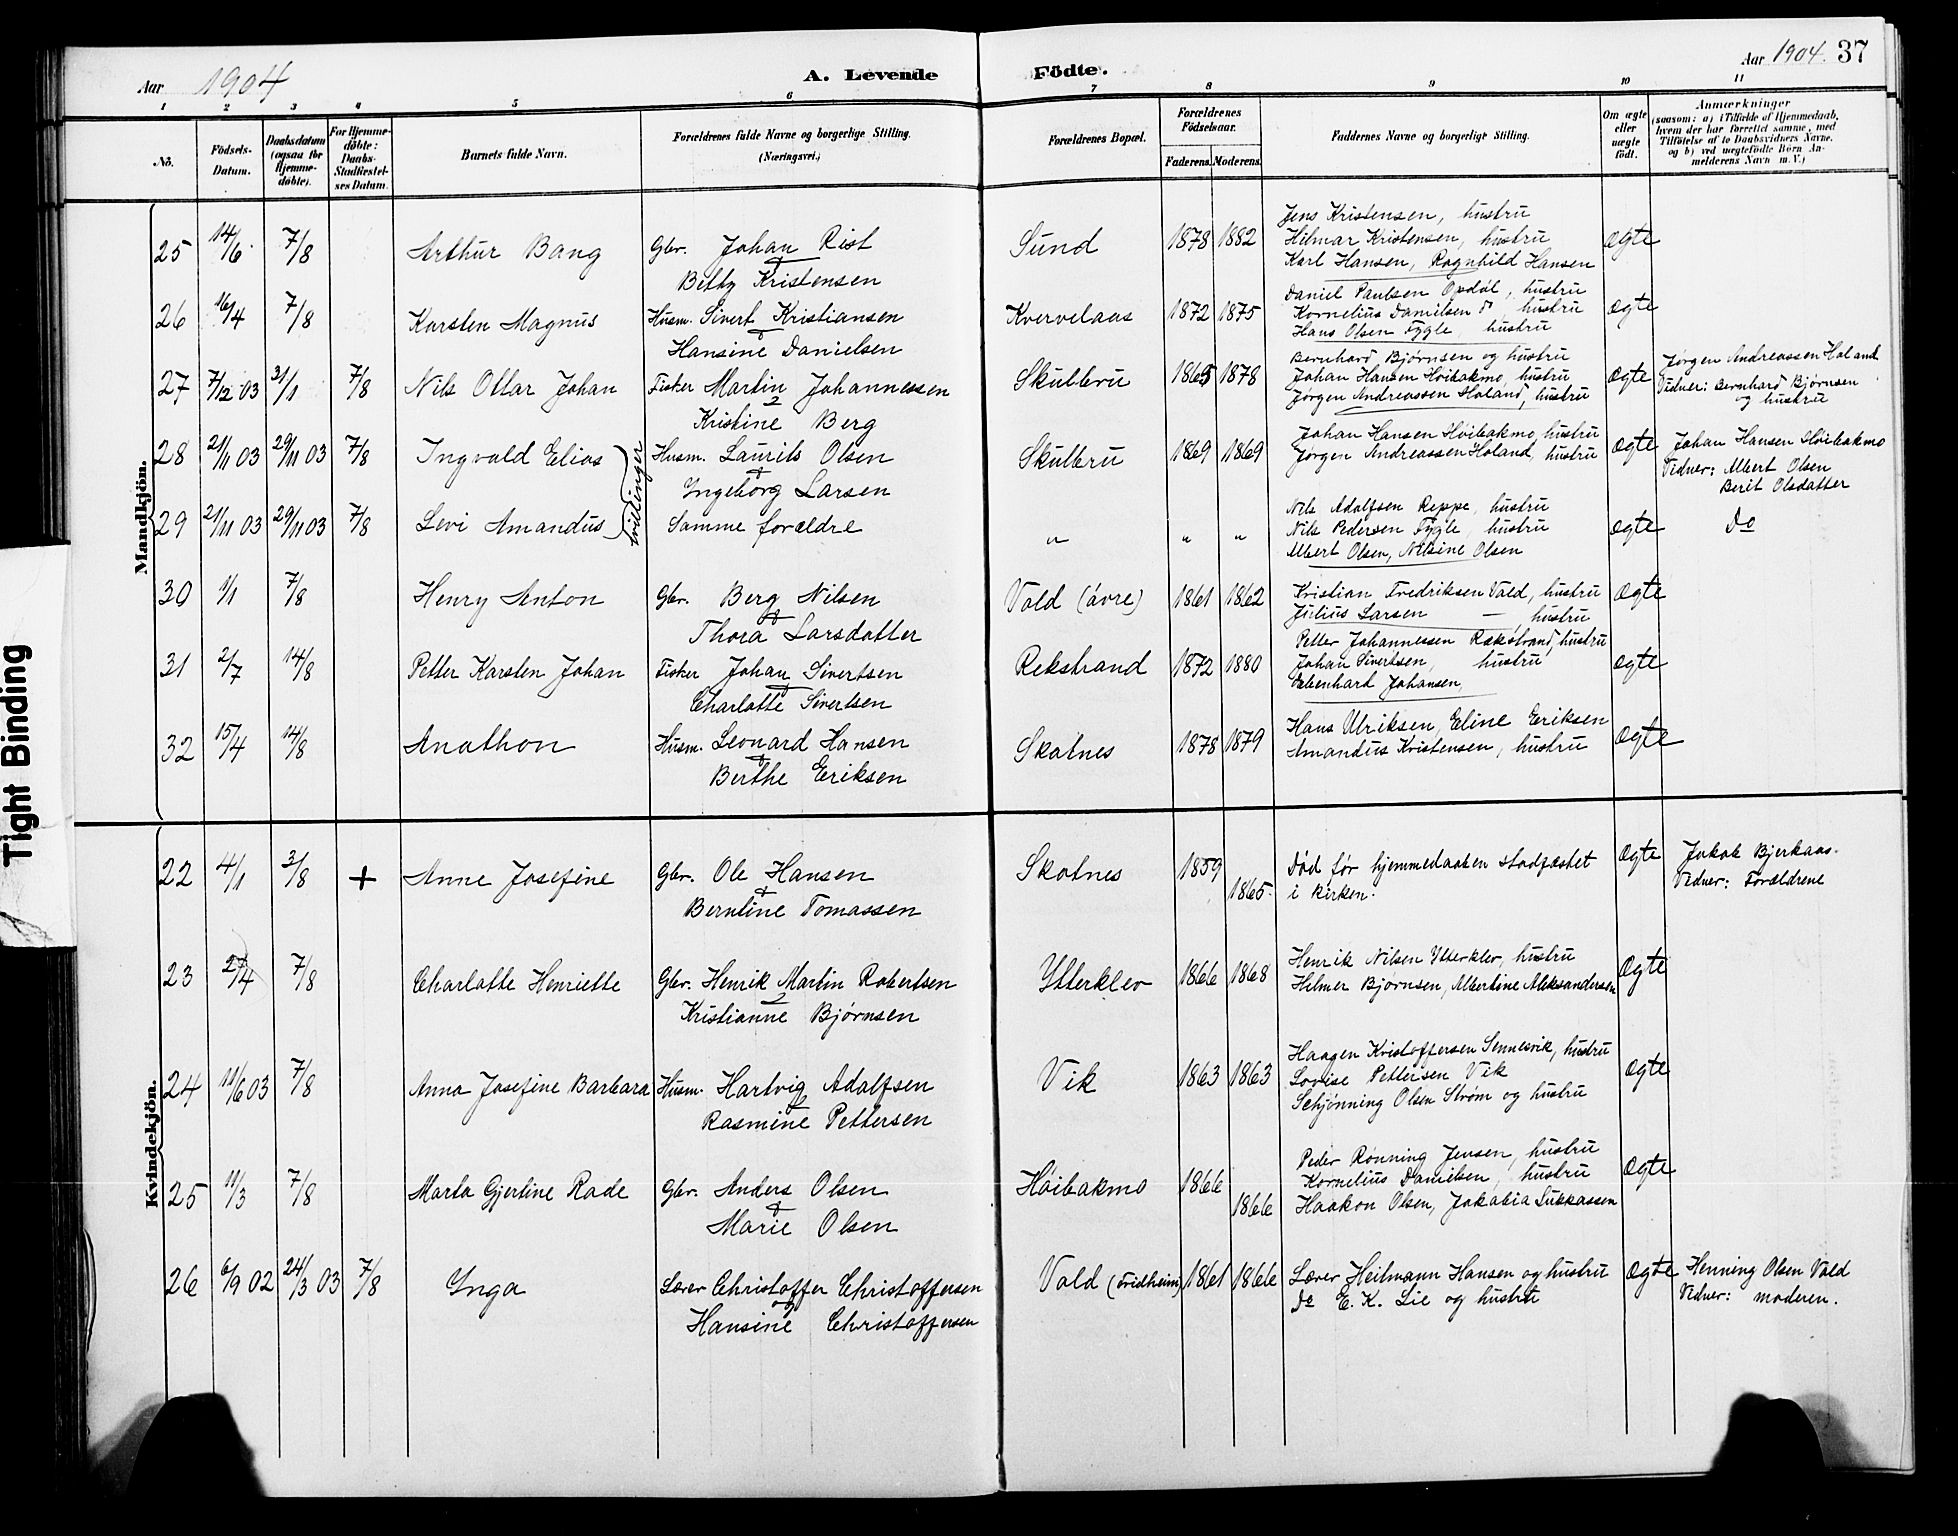 Aar 1904
A. Levende Födte.
Aar 1904. 37
1 2 3 4 5 6 7 8 9 10 11
Nö.
Födsels-
Datum.
Daabsdatum
(ogsaa for
Hjemme-
döbte).
For Hjemme-
döbte:
Daabs-
Stadfæstel-
ses Datum.
Barnets fulde Navn.
Forældrenes fulde Navne og borgerlige Stilling.
(Næringsvei.)
Forældrenes Bopæl.
Forældrenes
Födselsaar.
Faderens. Moderens.
Faddernes Navne og borgerlige Stilling.
Om ægte
eller
uægte
födt.
Anmærkninger
(saasom: a) i Tilfælde af Hjemmedaab,
hvem der har forrettet samme, med
Tilföielse af to Daabsvidners Navne,
og b) ved uægtefödte Börn An-
melderens Navn m. V.)
Mandkjön.
25 14/6 7/8 Arthur Bang Gbr. Johan Rist Sund 1878 1882 Jens Kristensen, hustru
Hilmar Kristensen, hustru ægte
& Betty Kristensen Karl Hansen, Ragnhild Hansen
26 16/4 7/8 Karsten Magnus Husm. Sivert Kristiansen Kvervelaas 1872 1875 Daniel Paulsen Opdøl, hustru
Kornelius Danielsen d, hustru ægte
& Hansine Danielsen Hans Olsen Tygle, hustru
27 7/12 03 31/1 7/8 Nils Ottar Johan Fisker Martin Johannessen Skulbru 1865 1878 Bernhard Bjørnsen og hustru
Johan Hansen Høibakmo, hustru ægte Jørgen Andreassen Holand
& Kristine Berg Jørgen Andreassen Holand, hustru Vidner: Bernhard Bjørnsen
og hustru
28 21/11 03 29/11 03 7/8 Ingvald Elias Husm. Laurits Olsen Skulbru 1869 1869 Johan Hansen Høibakmo, hustru ægte Johan Hansen Høibakmo
& Ingeborg Larsen Jørgen Andreassen Holand, hustru Vidner: Albert Olsen
Berit Olsdatter
tvillinger
29 21/11 03 29/11 03 7/8 Levi Amandus Samme forældre " " " Nils Adolfsen Reppe, hustru
Nils Pedersen Tygle, hustru ægte Do
Albert Olsen, Nelsine Olsen
30 1/1 7/8 Henry Anton Gbr. Berg Nilsen Vold (øvre) 1861 1862 Kristian Fredriksen Vold, hustru ægte
& Thora Larsdatter Julius Larsen — , hustru
31 2/7 14/8 Petter Karsten Johan Fisker Johan Sivertsen Rekstrand 1872 1880 Petter Johannessen Rækstrand, hustru
Johan Sivertsen, hustru ægte
& Charlotte Sivertsen Edenhard Johansen,
32 15/4 14/8 Anathon Husm. Leonard Hansen Skotnes 1878 1879 Hans Ulriksen, Eline Eriksen ægte
& Berthe Eriksen Amandus Kristensen, hustru
Kvindekjön.
22 4/1 3/8 + Anne Josefine Gbr. Ole Hansen Skotnes 1859 1865. Død før hjemmedaaben stadfæstet ægte Jakob Bjerkaas.
& Berntine Tomassen i kirken. Vidner: Forældrene
23 27/4 7/8 Charlotte Henriette Gbr. Henrik Martin Robertsen Ytterklev 1866 1868 Henrik Nilsen Ytterklev, hustru ægte
& Kristianne Bjørnsen Hilmer Bjørnsen, Albertine Aleksandersen
24 11/6 03 7/8 Anna Josefine Barbara Husm. Hartvig Adolfsen Vik 1863 1863 Haagen Kristoffersen Sennesvik, hustru
Lovise Pettersen Vik ægte
& Rasmine Pettersen Schjønning Olsen Strøm og hustru
25 11/3 7/8 Marta Gjertine Rade Gbr. Anders Olsen Høibakmo 1866 1866 Peder Rønning Jensen, hustru
Kornelius Danielsen, hustru ægte
& Marie Olsen Haakon Olsen, Jakobia Lukkassen
26 6/9 02 24/3 03 7/8 Inga Lærer Christoffer Christoffersen Vold (Fridheim) 1861 1866 Lærer Heitmann Hansen og hustru ægte Henning Olsen Vold
& Hansine Christoffersen Do E. K. Lie og hustru Vidner: moderen.
Tight Binding